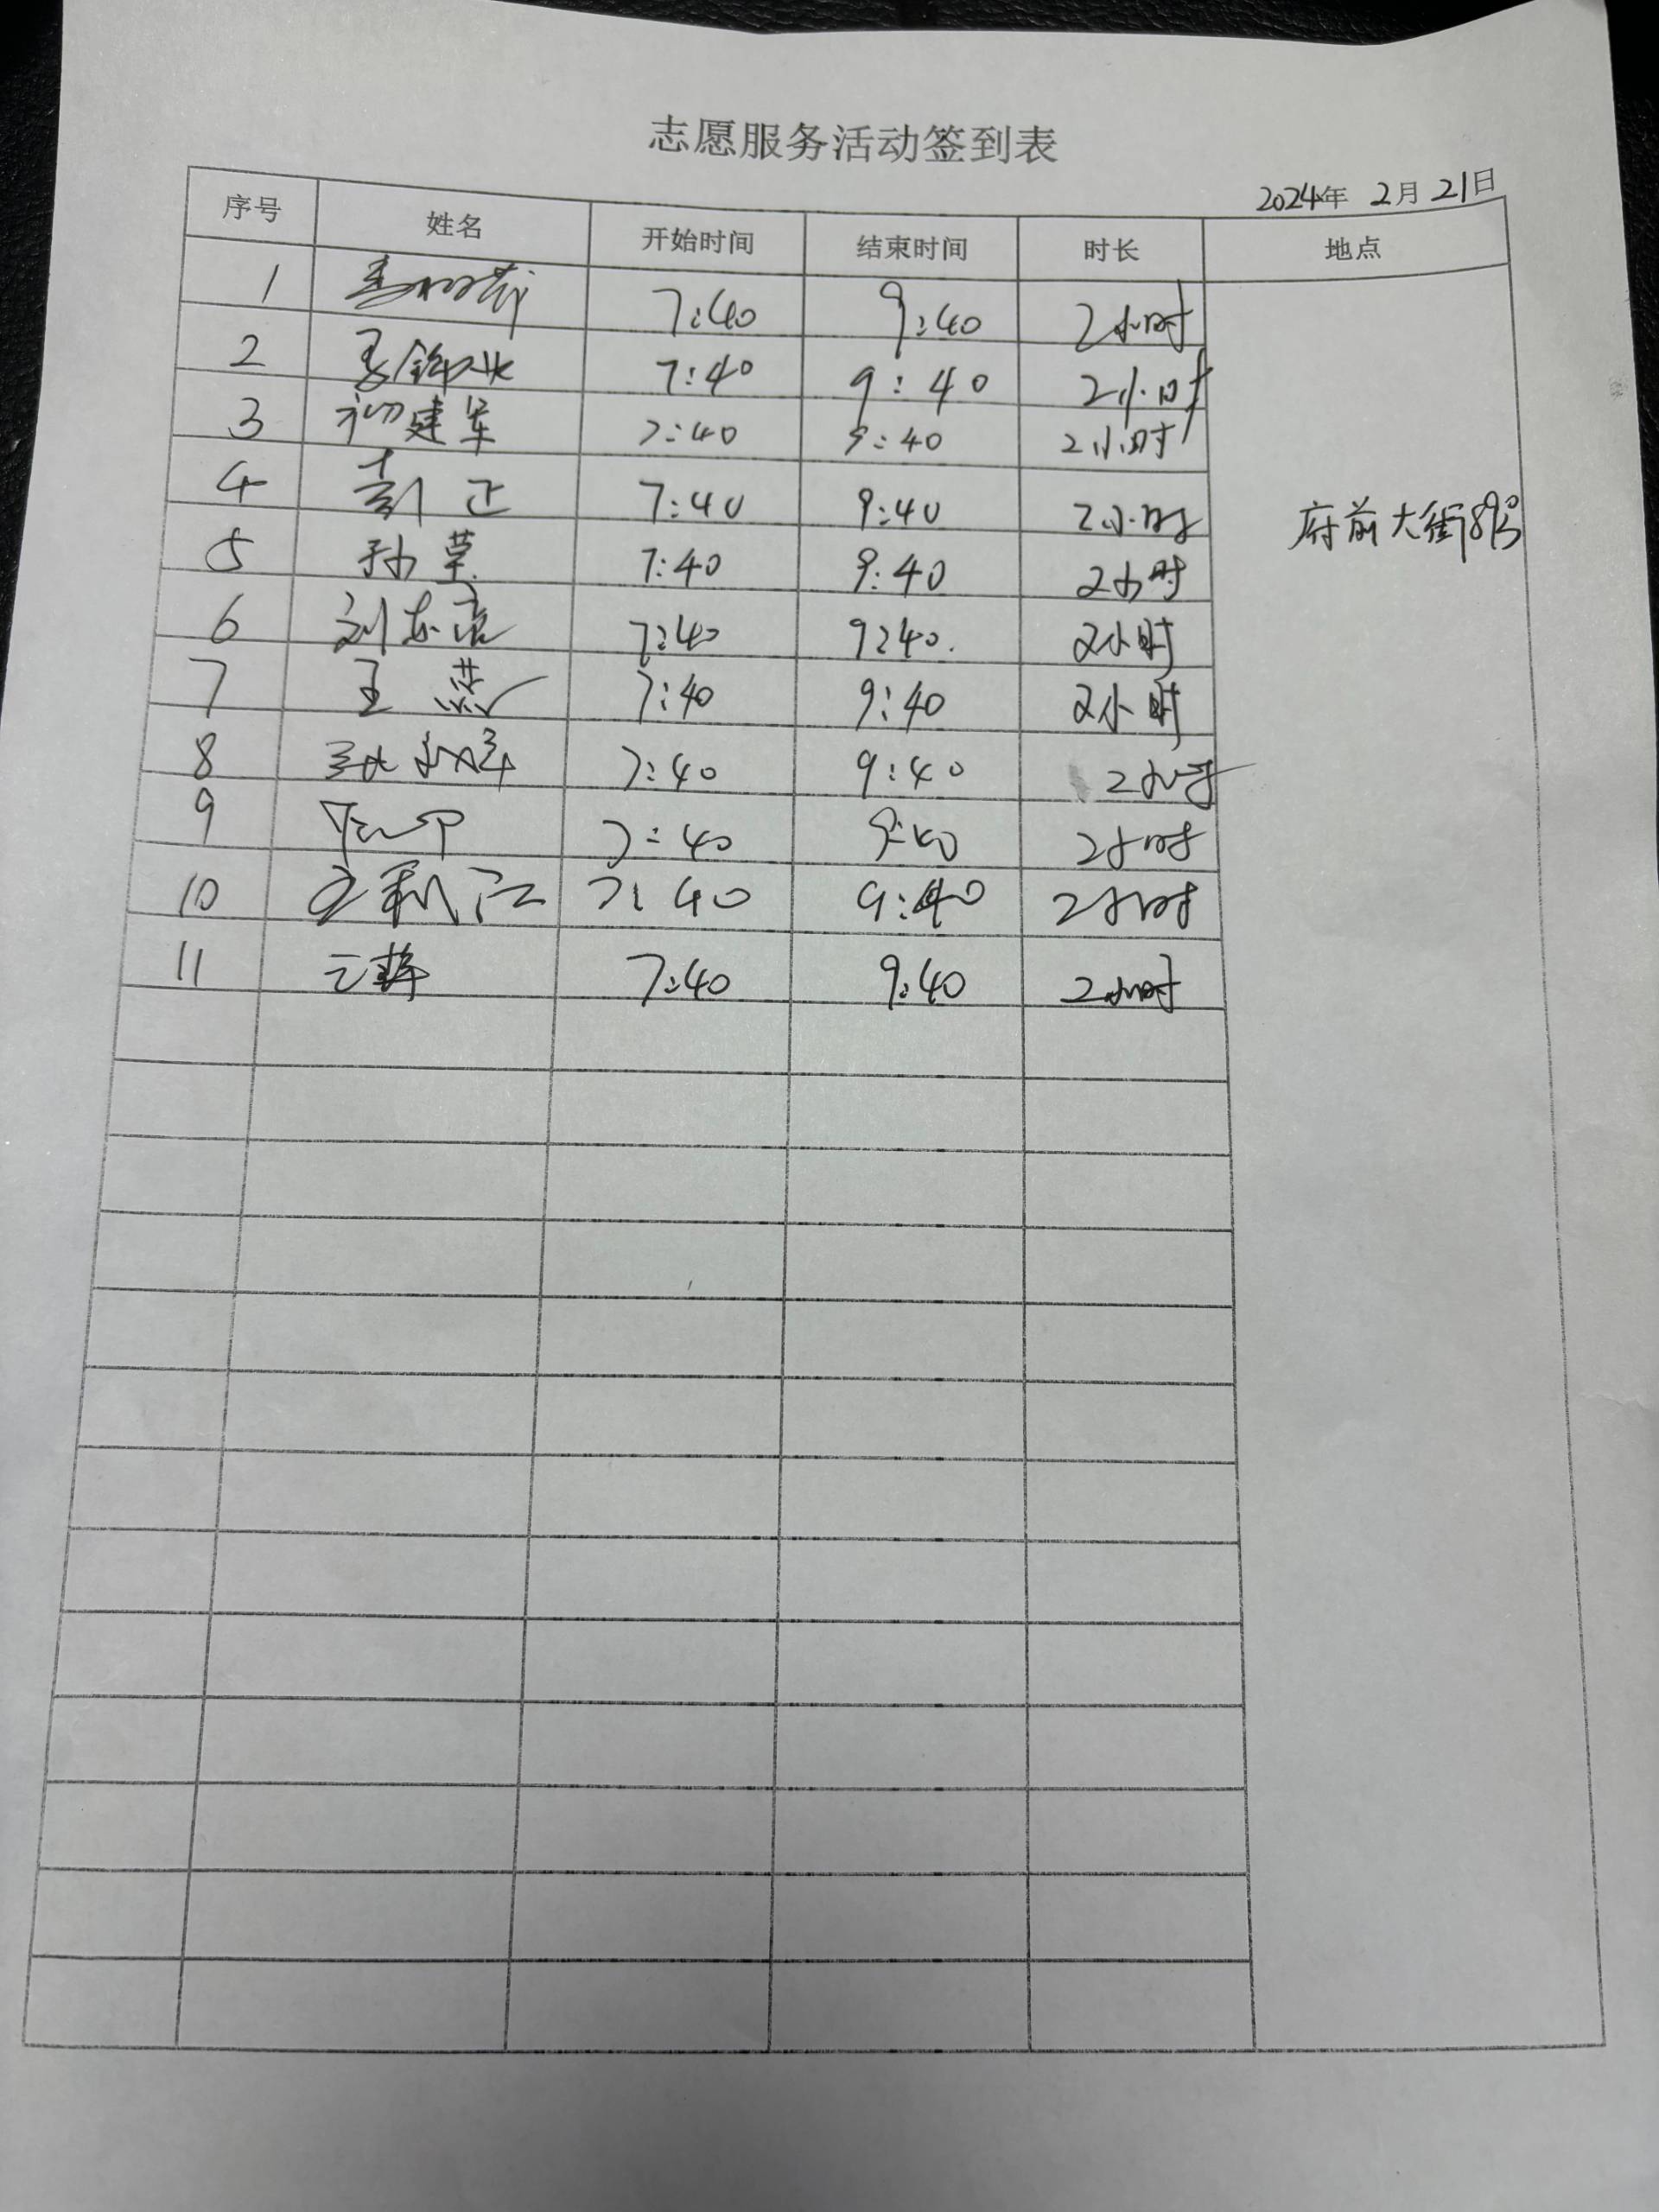 志愿服务活动签到表
2024年 2月 21日
序号 姓名 开始时间 结束时间 时长 地点
1 7:40 9:40 2小时
2 7:40 9:40 2小时
3 初建军 7:40 9:40 2小时
4 正 7:40 9:40 2小时
5 孙草 7:40 9:40 2小时
府前大街89号
6 刘东亮 7:40 9:40 2小时
7 王燕 7:40 9:40 2小时
8 7:40 9:40 2小时
9 7:40 9:40 2小时
10 7:40 9:40 2小时
11 7:40 9:40 2小时